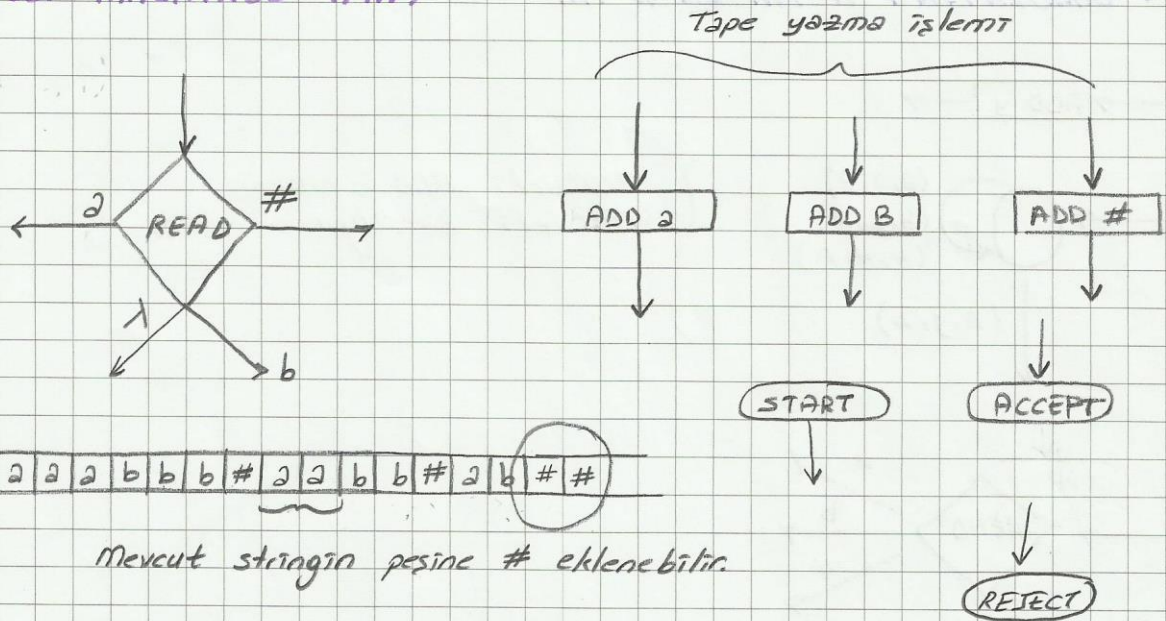 Tape yazma işlemi
a READ #
λ b
ADD a ADD B ADD #
START ACCEPT
a a a b b b # a a b b # a b # #
Mevcut stringin peşine # eklenebilir.
REJECT